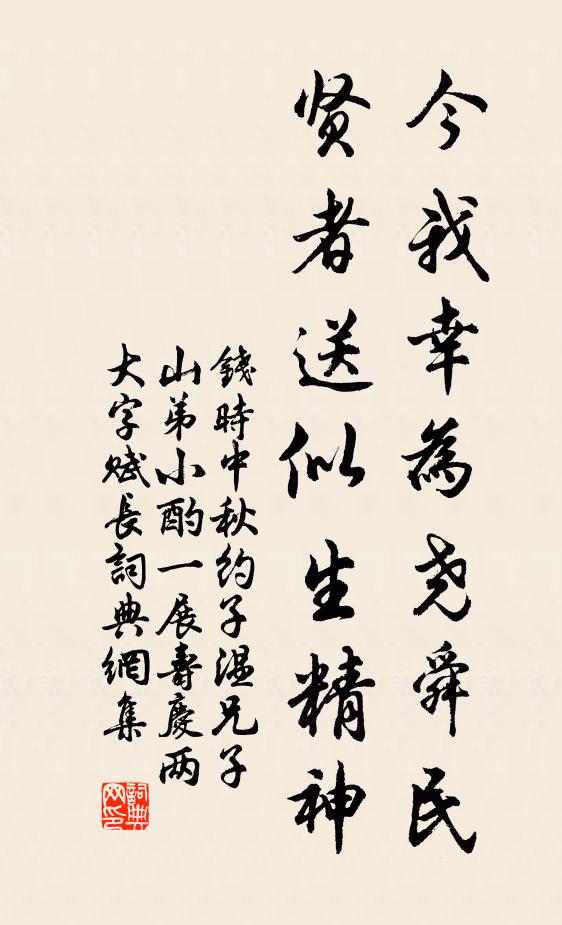 今我幸為尧舜民
贤者送似生精神
錢時中秋约子温兄子
山弟小酌一展壽慶两
大字赋長詞典網集
詞典网印